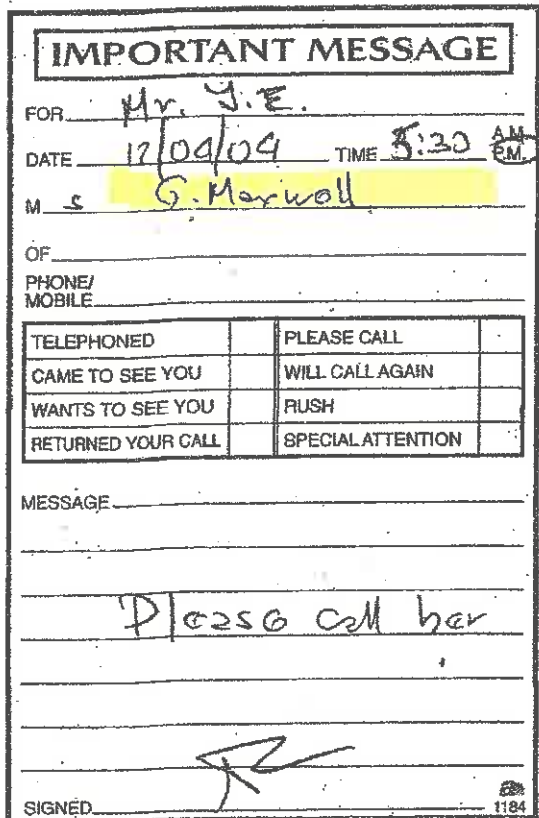 IMPORTANT MESSAGE
FOR Mr. J.E.
DATE 12/04/04 TIME 5:30 A.M. P.M.
M s G. Maxwell
OF
PHONE/
MOBILE
TELEPHONED PLEASE CALL
CAME TO SEE YOU WILL CALL AGAIN
WANTS TO SEE YOU RUSH
RETURNED YOUR CALL SPECIAL ATTENTION
MESSAGE
Please call her
SIGNED 1184